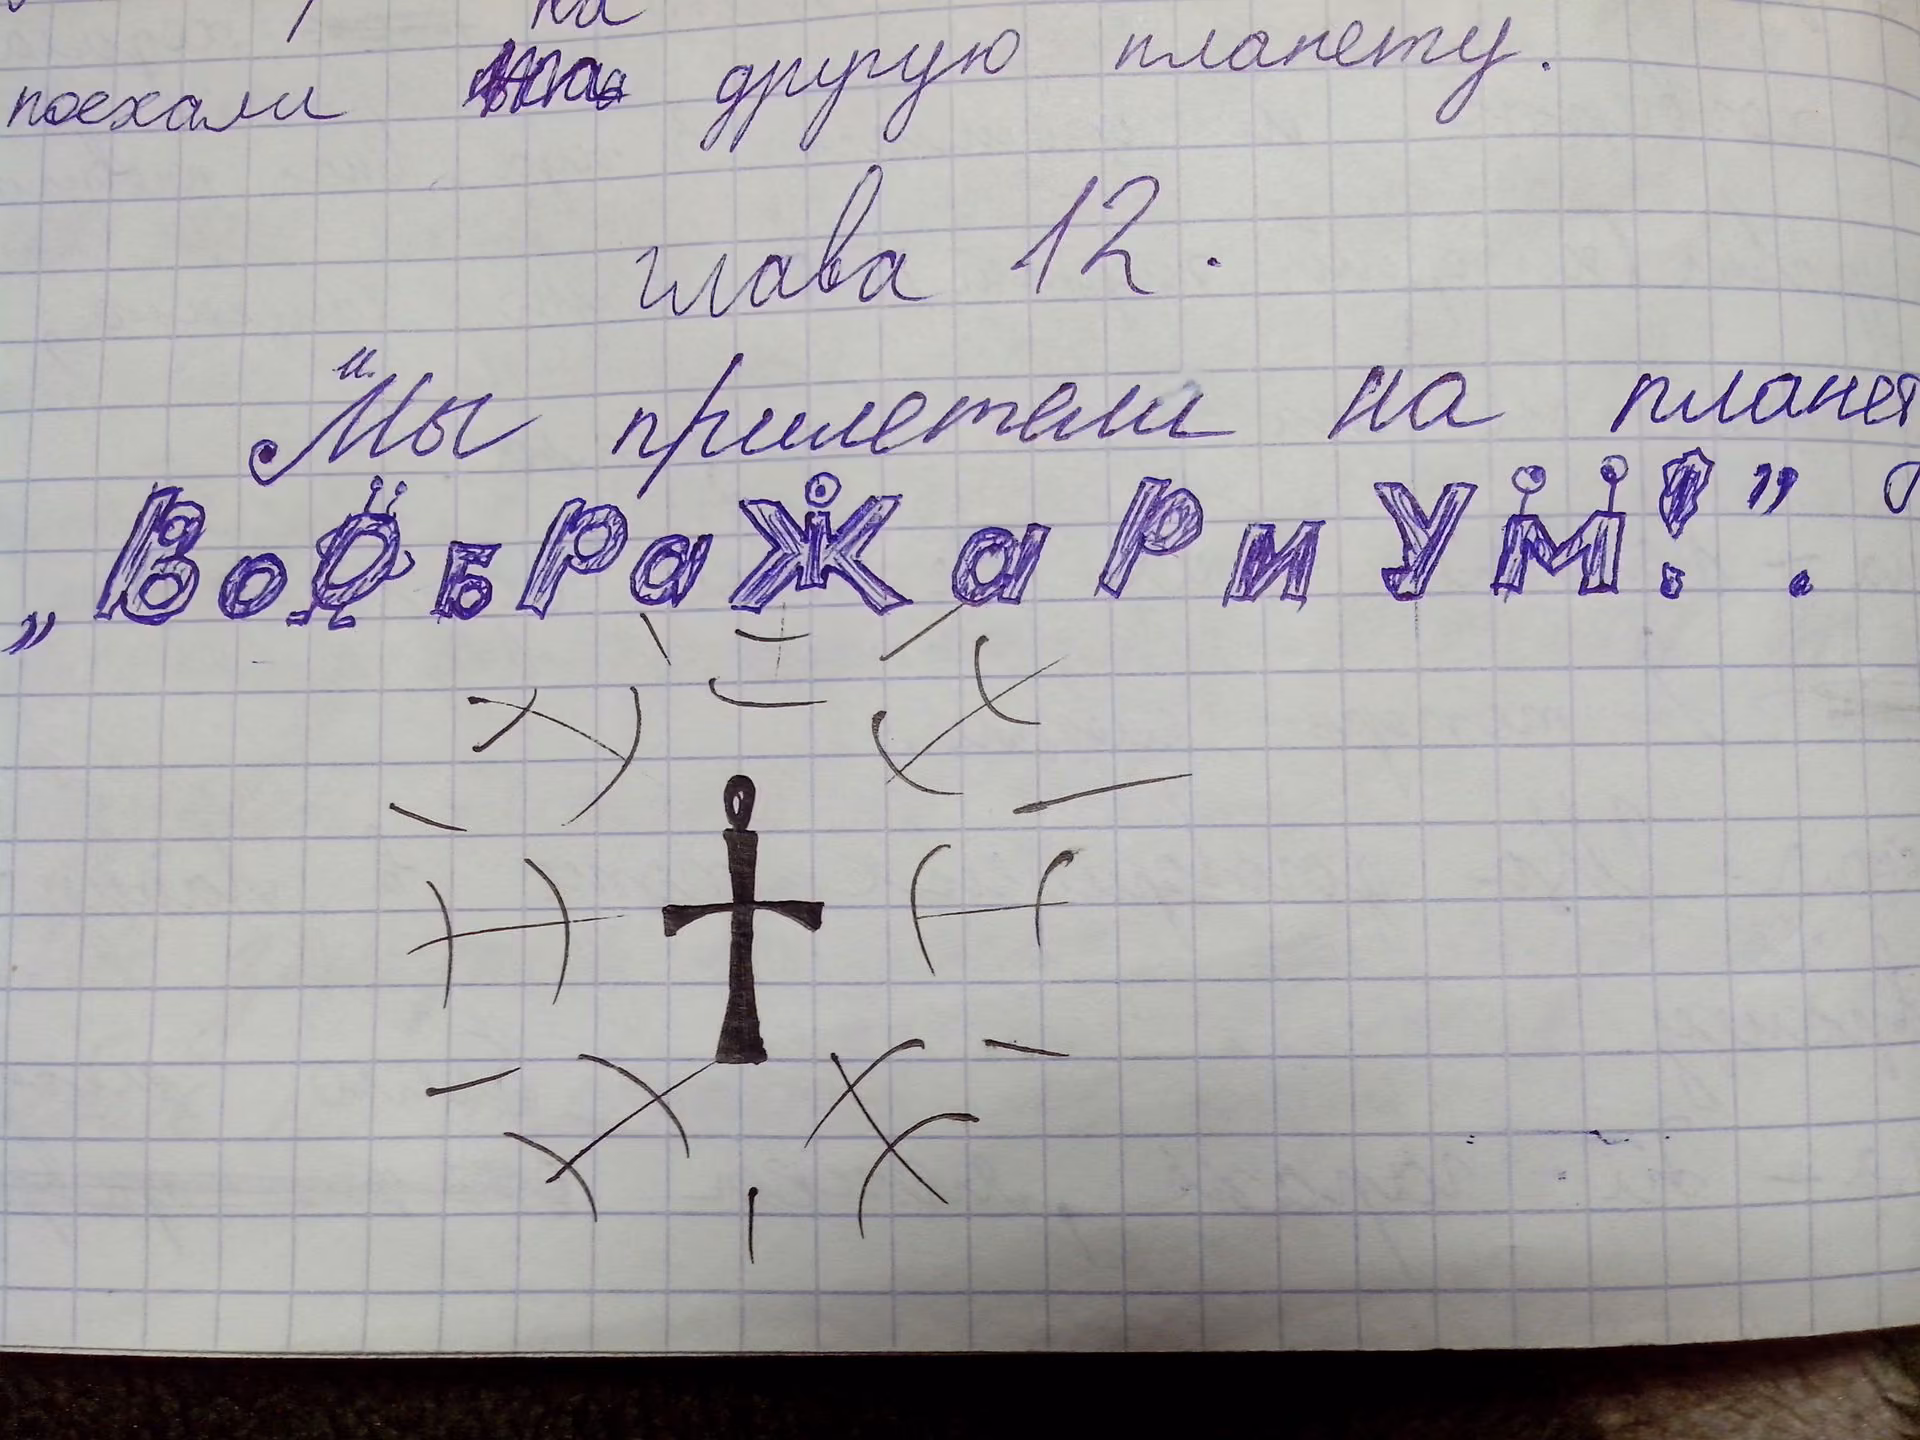 на
поехали другую планету.
глава 12.
и.
Мы прилетели на планет
„ВоОбРаЖаРиУМ!”.